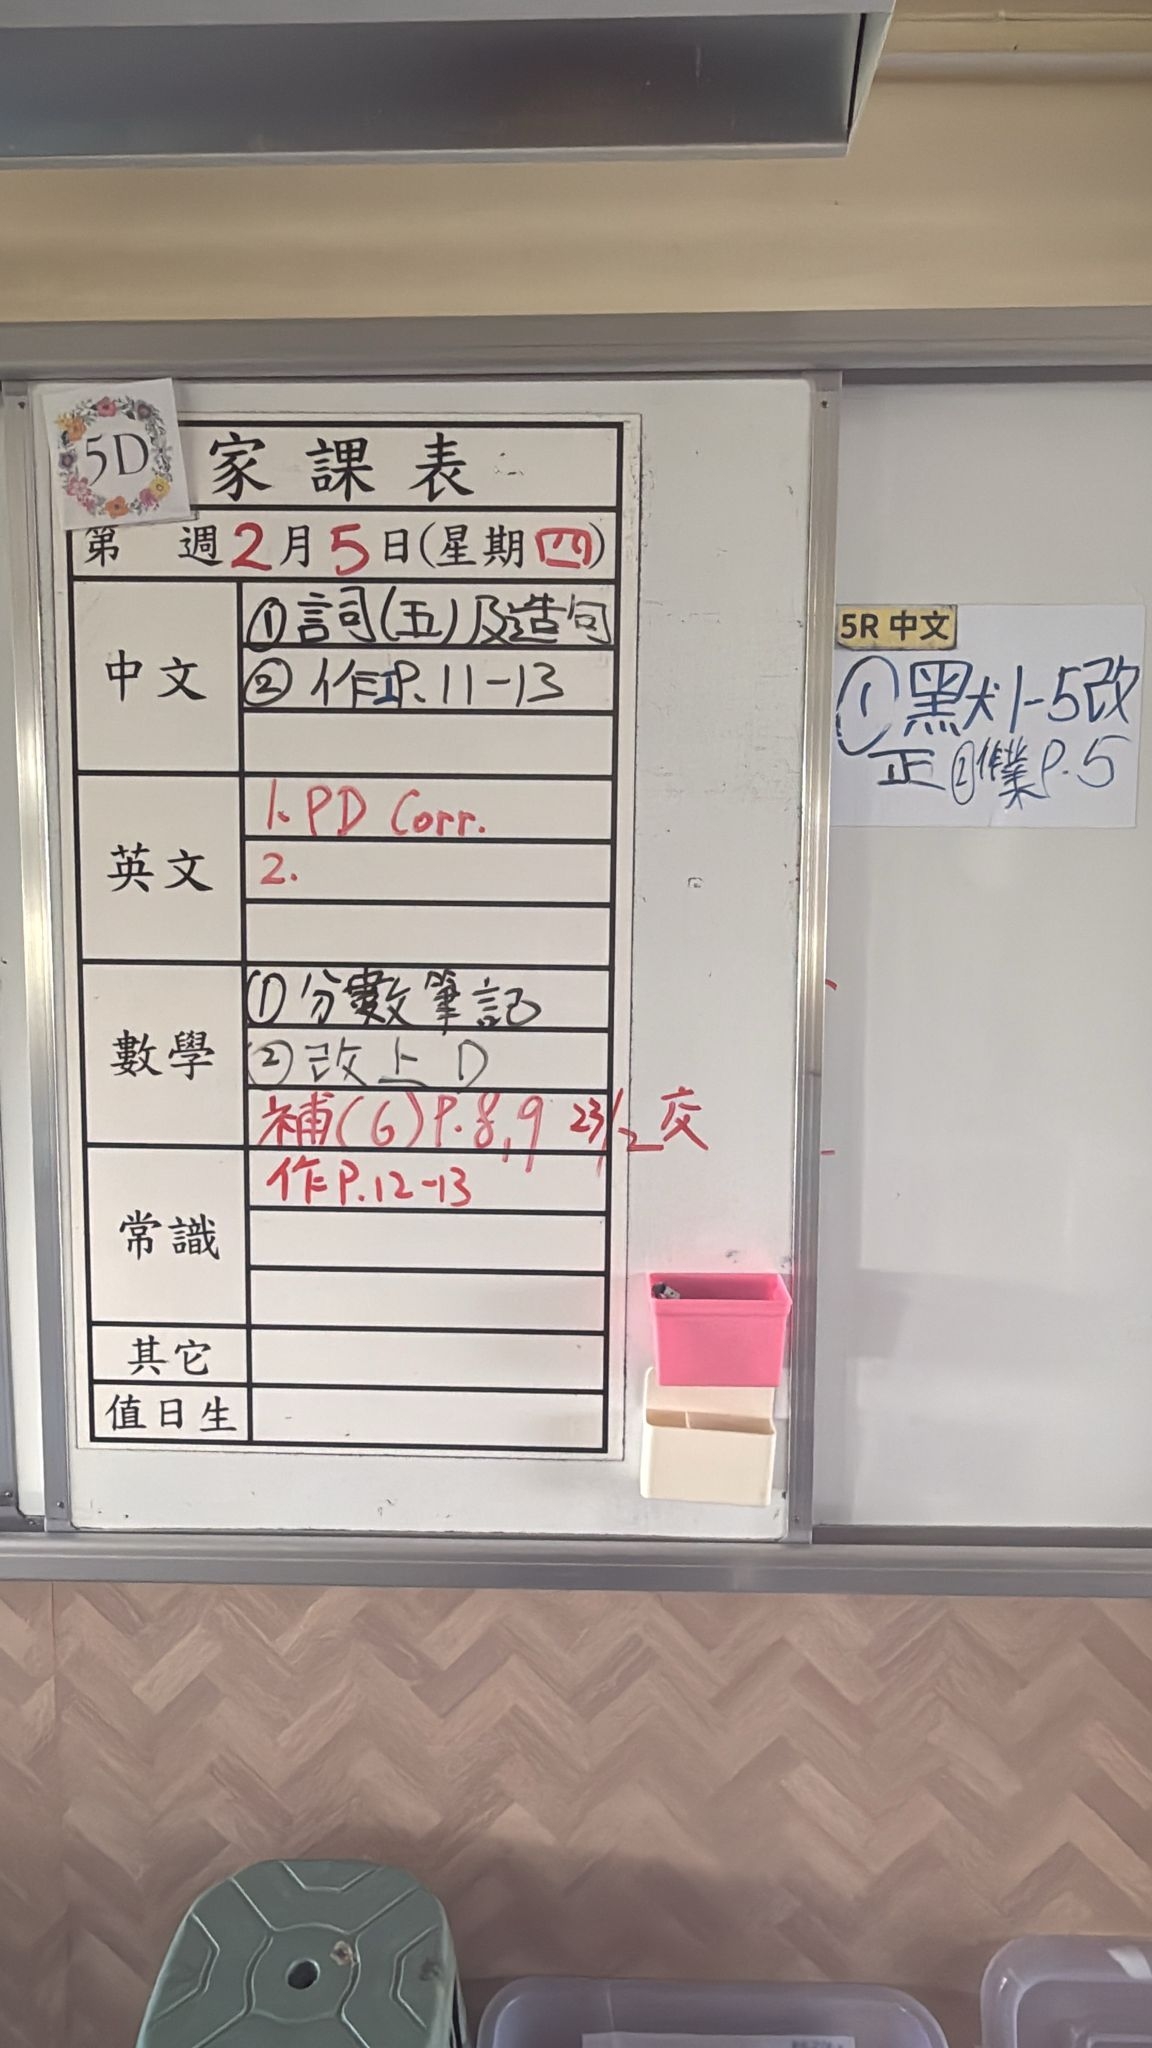 5D
家課表
第 週2月5日(星期四)
中文
①詞(五)及造句
②作P.11-13
英文
1. PD Corr.
2.
數學
①分數筆記
②改上D
補(6)P.8,9 23/2交
常識
作P.12-13
其它
值日生
5R 中文
①默1-5改
正②作業P.5